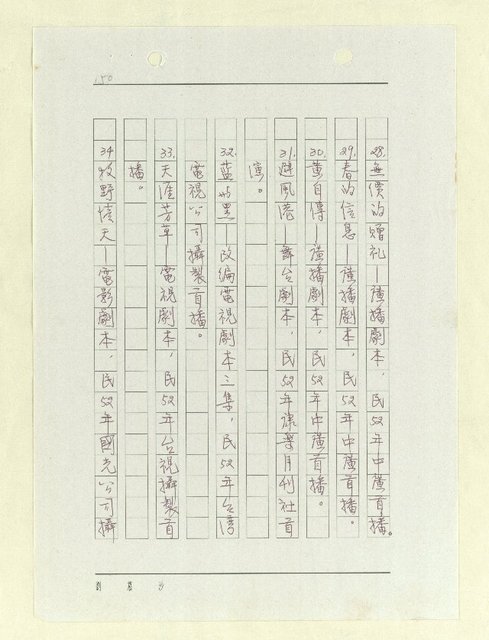 150
28.無價的贈礼—廣播劇本，民52年中廣首播。
29.春的信息—廣播劇本，民52年中廣首播。
30.黃自傳—廣播劇本，民52年中廣首播。
31.避風港—舞台劇本，民52年康樂月刊社首
演。
32.藍與黑—改編電視劇本三集，民52年台灣
電視公司攝製首播。
33.天涯芳草—電視劇本，民52年台視攝製首
播。
34.牧野恨天—電影劇本，民52年國光公司攝
劉慕沙